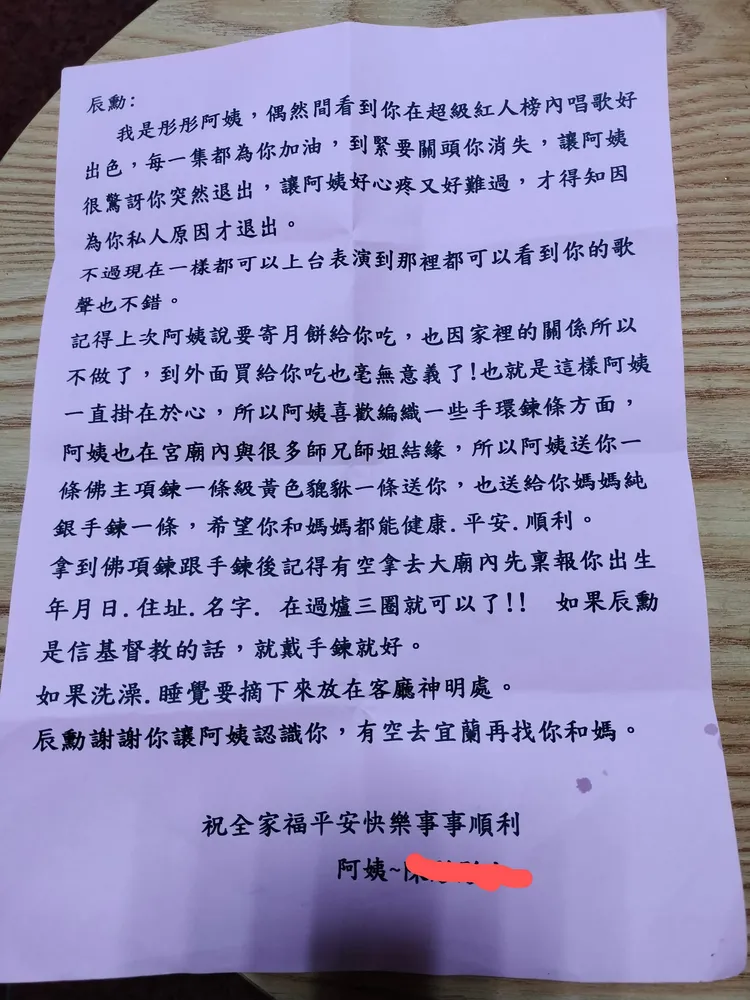 辰勳:
我是彤彤阿姨，偶然間看到你在超級紅人榜內唱歌好
出色，每一集都為你加油，到緊要關頭你消失，讓阿姨
很驚訝你突然退出，讓阿姨好心疼又好難過，才得知因
為你私人原因才退出。
不過現在一樣都可以上台表演到那裡都可以看到你的歌
聲也不錯。
記得上次阿姨說要寄月餅給你吃，也因家裡的關係所以
不做了，到外面買給你吃也毫無意義了!也就是這樣阿姨
一直掛在於心，所以阿姨喜歡編織一些手環鍊條方面，
阿姨也在宮廟內與很多師兄師姐結緣，所以阿姨送你一
條佛主項鍊一條級黃色貔貅一條送你，也送給你媽媽純
銀手鍊一條，希望你和媽媽都能健康.平安.順利。
拿到佛項鍊跟手鍊後記得有空拿去大廟內先稟報你出生
年月日.住址.名字. 在過爐三圈就可以了!! 如果辰勳
是信基督教的話，就戴手鍊就好。
如果洗澡.睡覺要摘下來放在客廳神明處。
辰勳謝謝你讓阿姨認識你，有空去宜蘭再找你和媽。
祝全家福平安快樂事事順利
阿姨~